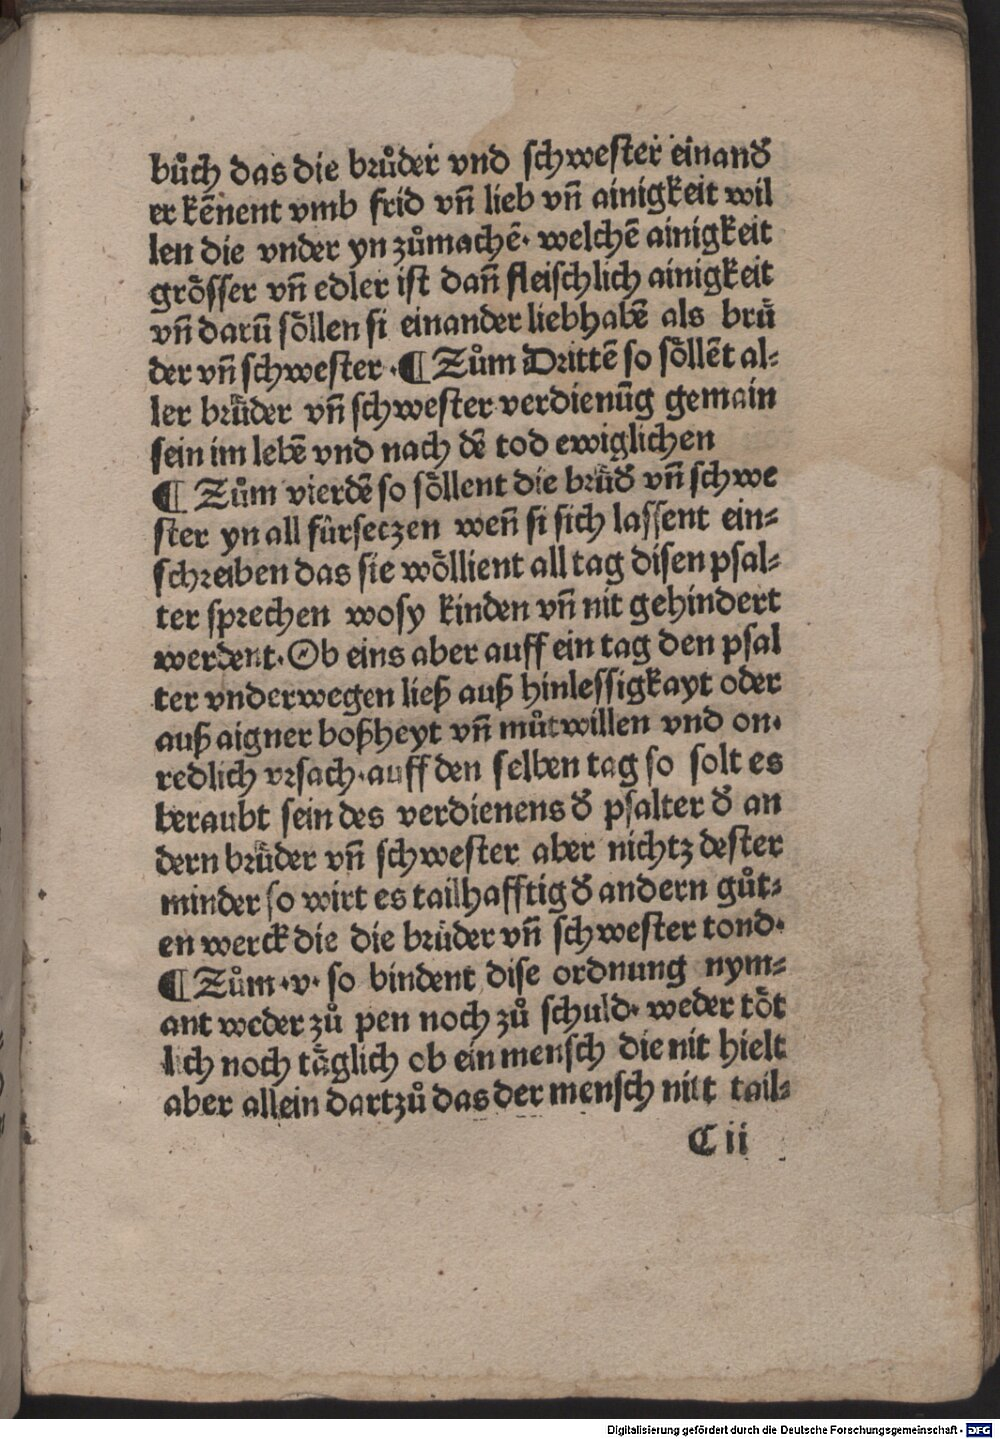 bůch das die brůder vnd schwester einand᷑
er kēnent vmb frid vn̄ lieb vn̄ ainigkeit wil
len die vnder yn zůmachē. welchē ainigkeit
grösser vn̄ edler ist dan̄ fleischlich ainigkeit
vn̄ darū söllen si einander liebhabē als brü
der vn̄ schwester. ¶ Zům Drittē so söllēt al⸗
ler brüder vn̄ schwester verdienūg gemain
sein im lebē vnd nach dē tod ewiglichen
¶ Zům vierdē so söllent die brüd᷑ vn̄ schwe
ster yn all fürseczen wen̄ si sich lassent ein⸗
schreiben das sie wöllient all tag disen psal⸗
ter sprechen wosy kinden vn̄ nit gehindert
werdent. Ob eins aber auff ein tag den psal
ter vnderwegen ließ auß hinlessigkayt oder
auß aigner boßheyt vn̄ můtwillen vnd on.
redlich vrsach. auff den selben tag so solt es
beraubt sein des verdienens d᷑ psalter d᷑ an
dern brüder vn̄ schwester aber nichtz dester
minder so wirt es tailhafftig d᷑ andern gůt⸗
en werck die die brüder vn̄ schwester tond.
¶ Zům .v. so bindent dise ordnung nym⸗
ant weder zů pen noch zů schuld. weder töt
lich noch täglich ob ein mensch die nit hielt
aber allein dartzů das der mensch nitt tail⸗
C ii
Digitalisierung gefördert durch die Deutsche Forschungsgemeinschaft - DFG